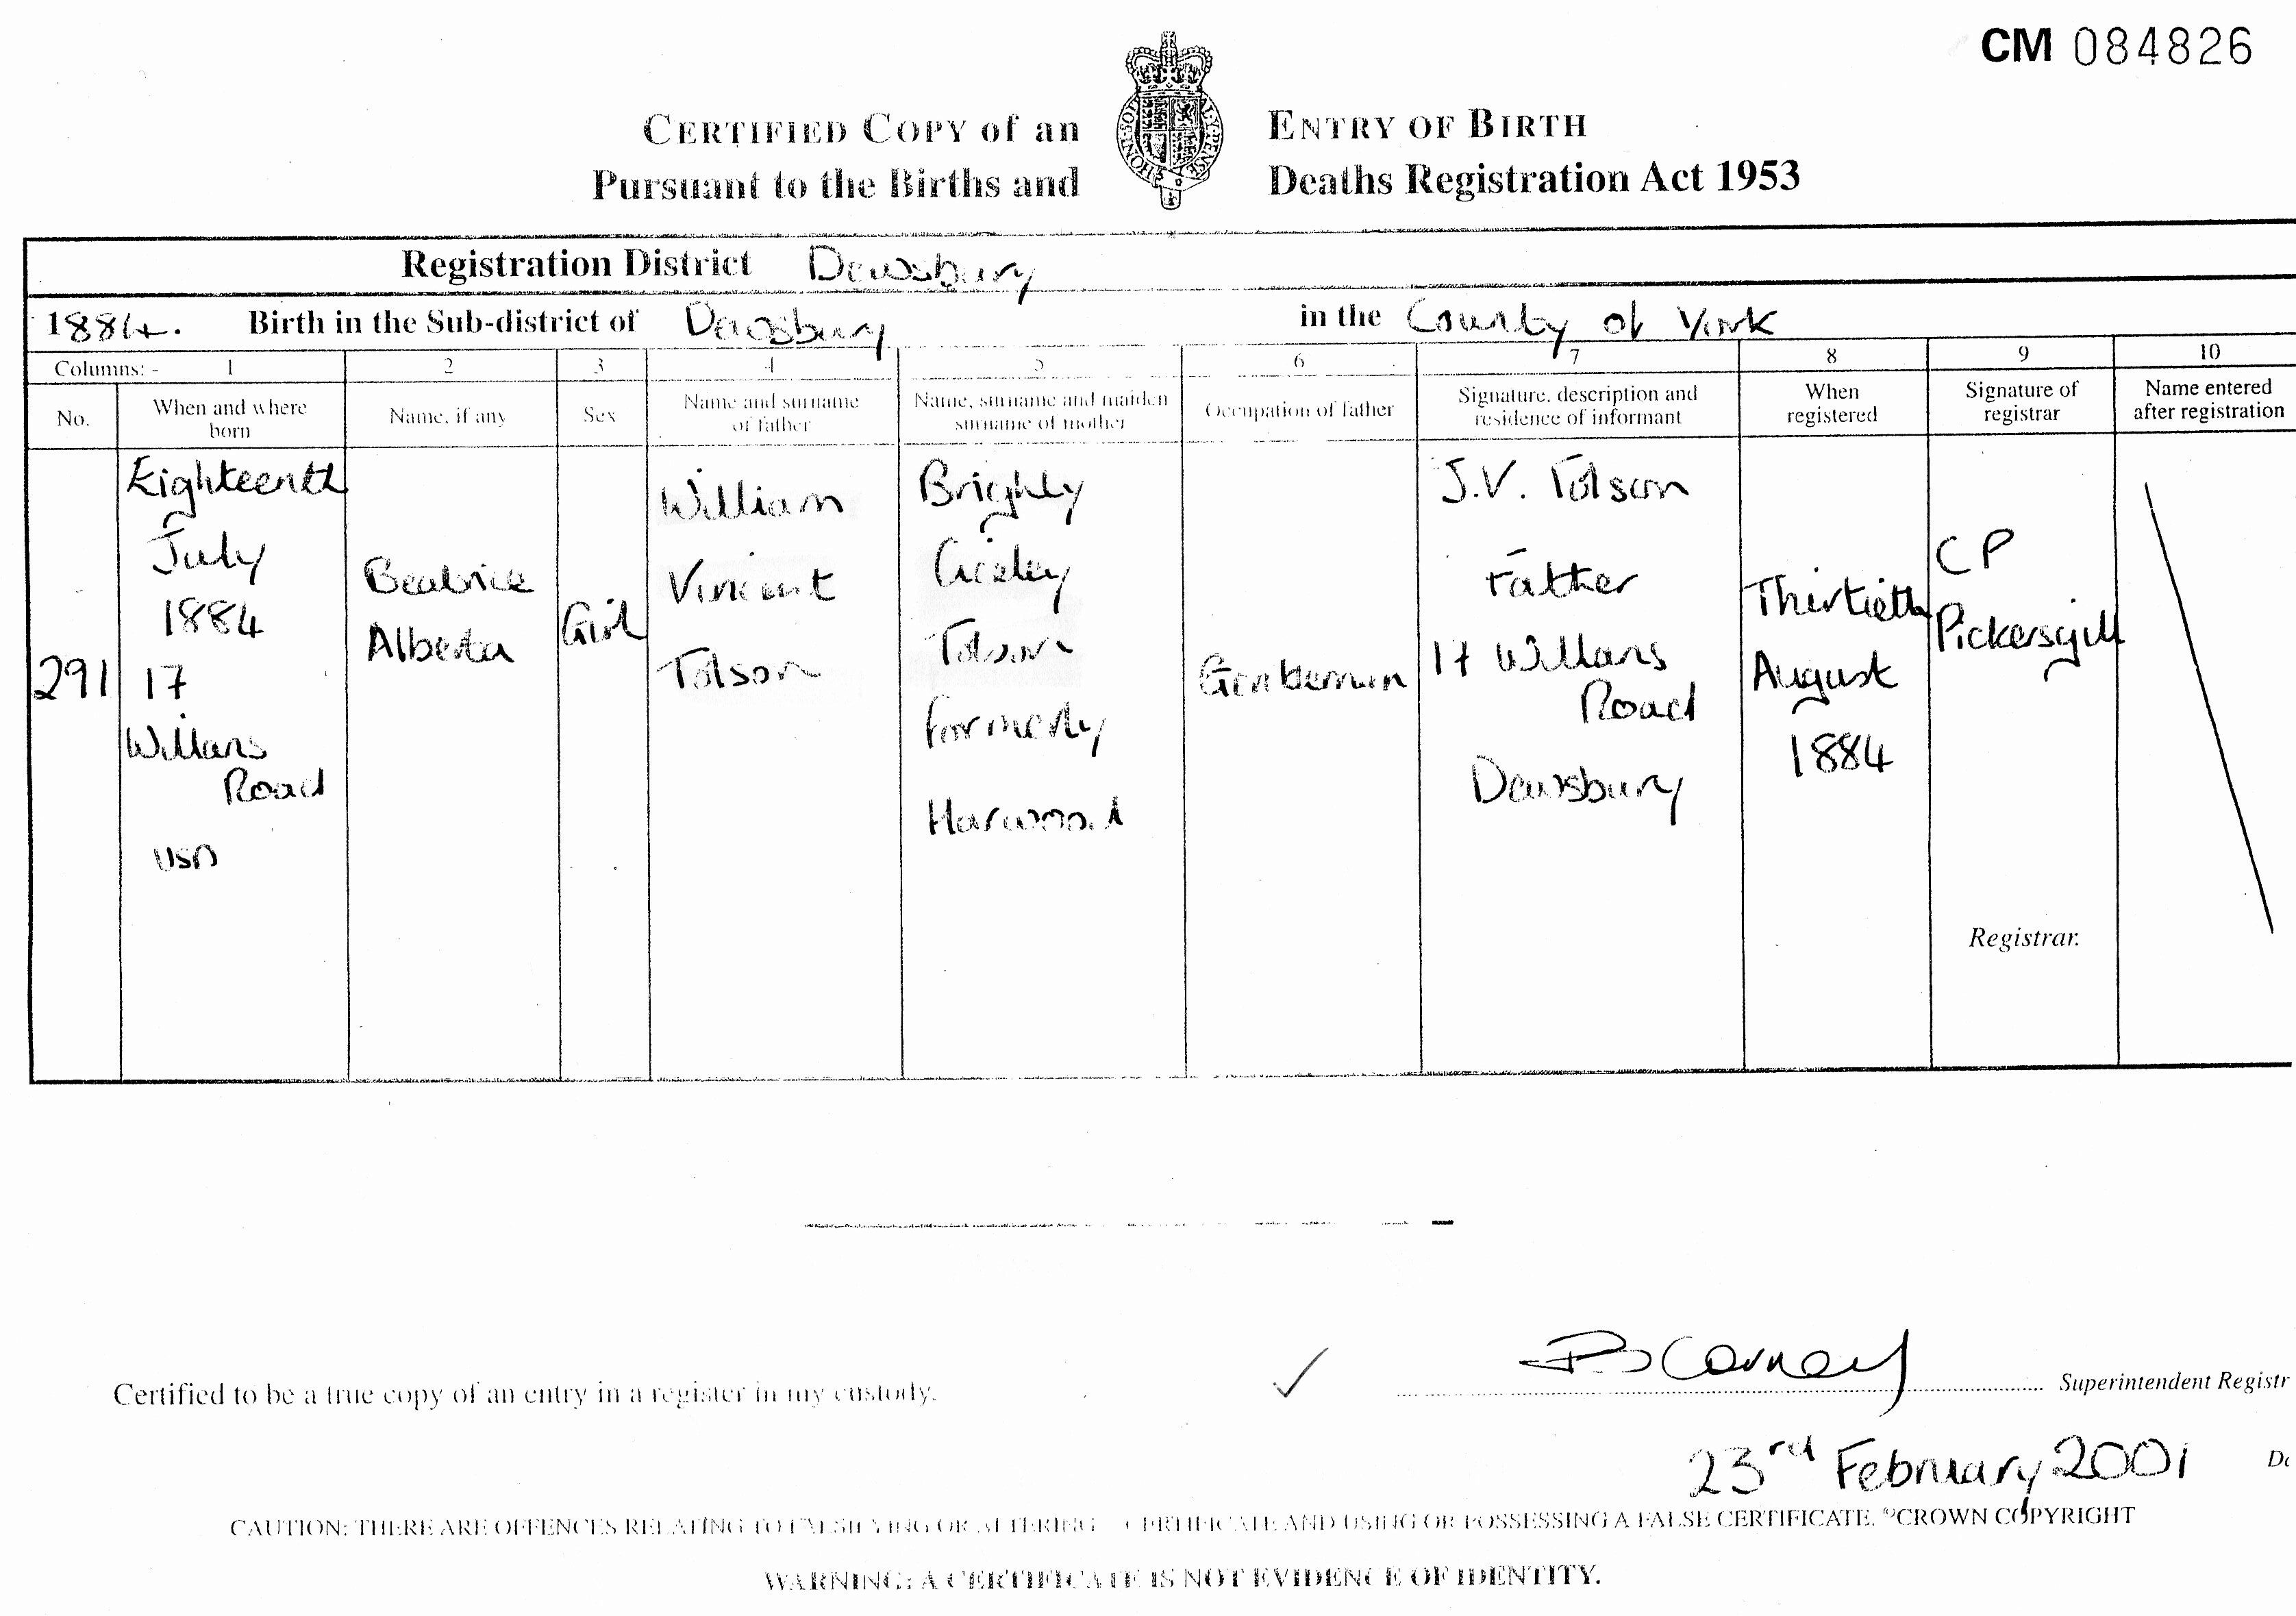 CM 084826
CERTIFIED COPY of an ENTRY OF BIRTH
Pursuant to the Births and Deaths Registration Act 1953
HONI SOIT
Registration District Dewsbury
1884. Birth in the Sub-district of Dewsbury in the County of York
Columns: - 1 2 3 4 5 6 7 8 9 10
No.
When and where
born
Name, if any
Sex
Name and surname
of father
Name, surname and maiden
surname of mother
Occupation of father
Signature, description and
residence of informant
When
registered
Signature of
registrar
Name entered
after registration
291
Eighteenth
July
1884
17
Willans
Road
USD
Beatrice
Alberta
Girl
William
Vincent
Tolson
Tolson
formerly
Harwood
Gentleman
J.V. Tolson
Father
17 Willans
Road
Dewsbury
Thirtieth
August
1884
CP
Pickersgill
Registrar.
Certified to be a true copy of an entry in a register in my custody.
Superintendent Registr
23rd February 2001
CAUTION: THERE ARE OFFENCES RELATING TO FALSIFYING OR ALTERING CERTIFICATE AND USING OR POSSESSING A FALSE CERTIFICATE. ©CROWN COPYRIGHT
WARNING: A CERTIFICATE IS NOT EVIDENCE OF IDENTITY.